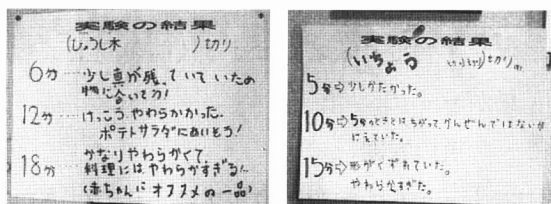 実験の結果
(ひょうし木　　　)切り
6分…少し真が残っていていための
物に合いそう!
12分…けっこうやわらかかった。
ポテトサラダにあいそう!
18分…かなりやわらかくて、
料理にはやわらかすぎる!
(赤ちゃんにオススメの一品)
実験の結果
(いちょう　　　)切り
5分⇨少しかたかった。
10分⇨5分のときとはちがって、かんぜんではないが
にえていた。
15分⇨形がくずれていた。
やわらかすぎた。